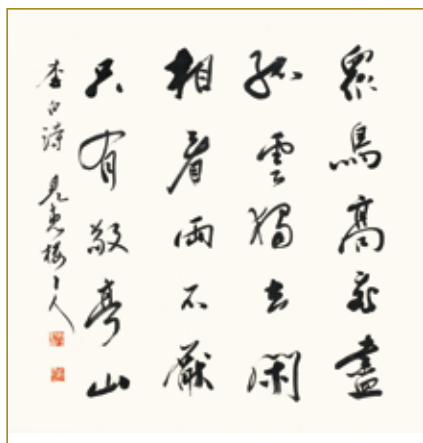 眾鳥高飛盡
孤雲獨去閑
相看兩不厭
只有敬亭山
李白詩